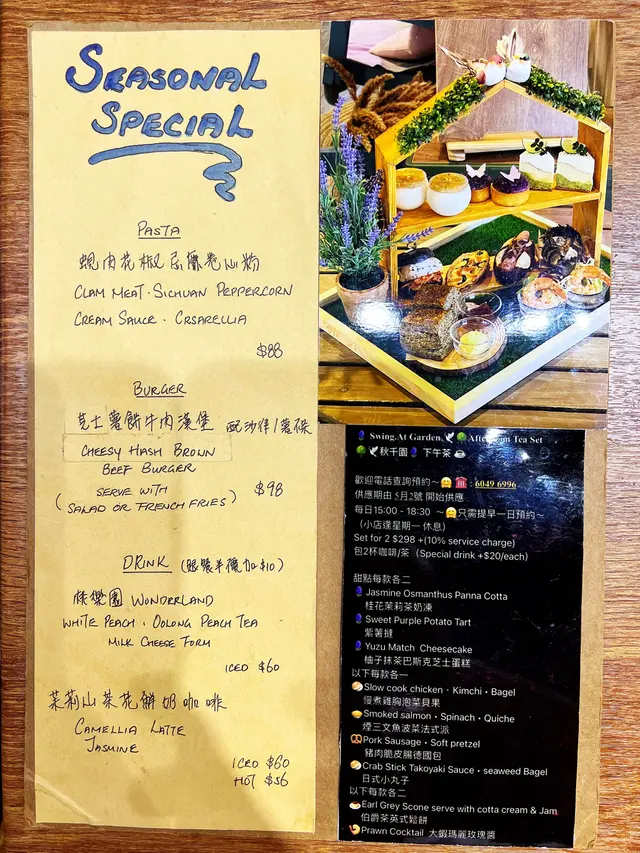 SEASONAL
SPECIAL
PASTA
蜆肉花椒忌廉卷心粉
CLAM MEAT · SICHUAN PEPPERCORN
CREAM SAUCE · CRSARELLIA
$88
BURGER
芝士薯餅牛肉漢堡 配沙律/薯條
CHEESY HASH BROWN
BEEF BURGER
SERVE WITH
(SALAD OR FRENCH FRIES)
$98
DRINK (跟餐半價加$10)
WONDERLAND
WHITE PEACH · OOLONG PEACH TEA
MILK CHEESE FORM
ICED $60
茉莉山茶花鮮奶咖啡
CAMELLIA LATTE
JASMINE
ICED $60
HOT $56
Swing At Garden Afternoon Tea Set
秋千園 下午茶
歡迎電話查詢預約～ : 6049 6996
供應期由 月2號 開始供應
每日15:00 - 18:30 ～只需提早一日預約～
（小店逢星期一 休息）
Set for 2 $298 +(10% service charge)
包2杯咖啡/茶（Special drink +$20/each）
甜點每款各二
Jasmine Osmanthus Panna Cotta
桂花茉莉茶奶凍
Sweet Purple Potato Tart
紫薯撻
Yuzu Match Cheesecake
柚子抹茶巴斯克芝士蛋糕
以下每款各一
Slow cook chicken · Kimchi · Bagel
慢煮雞胸泡菜貝果
Smoked salmon · Spinach · Quiche
煙三文魚菠菜法式派
Pork Sausage · Soft pretzel
豬肉脆皮腸德國包
Crab Stick Takoyaki Sauce · seaweed Bagel
日式小丸子
以下每款各二
Earl Grey Scone serve with cotta cream & Jam
伯爵茶英式鬆餅
Prawn Cocktail 大蝦瑪麗玫瑰醬